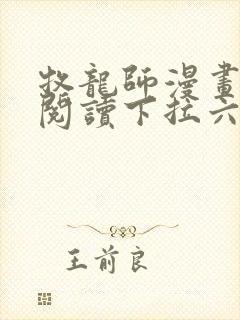 牧龍師漫畫
閱讀下拉六
王前良